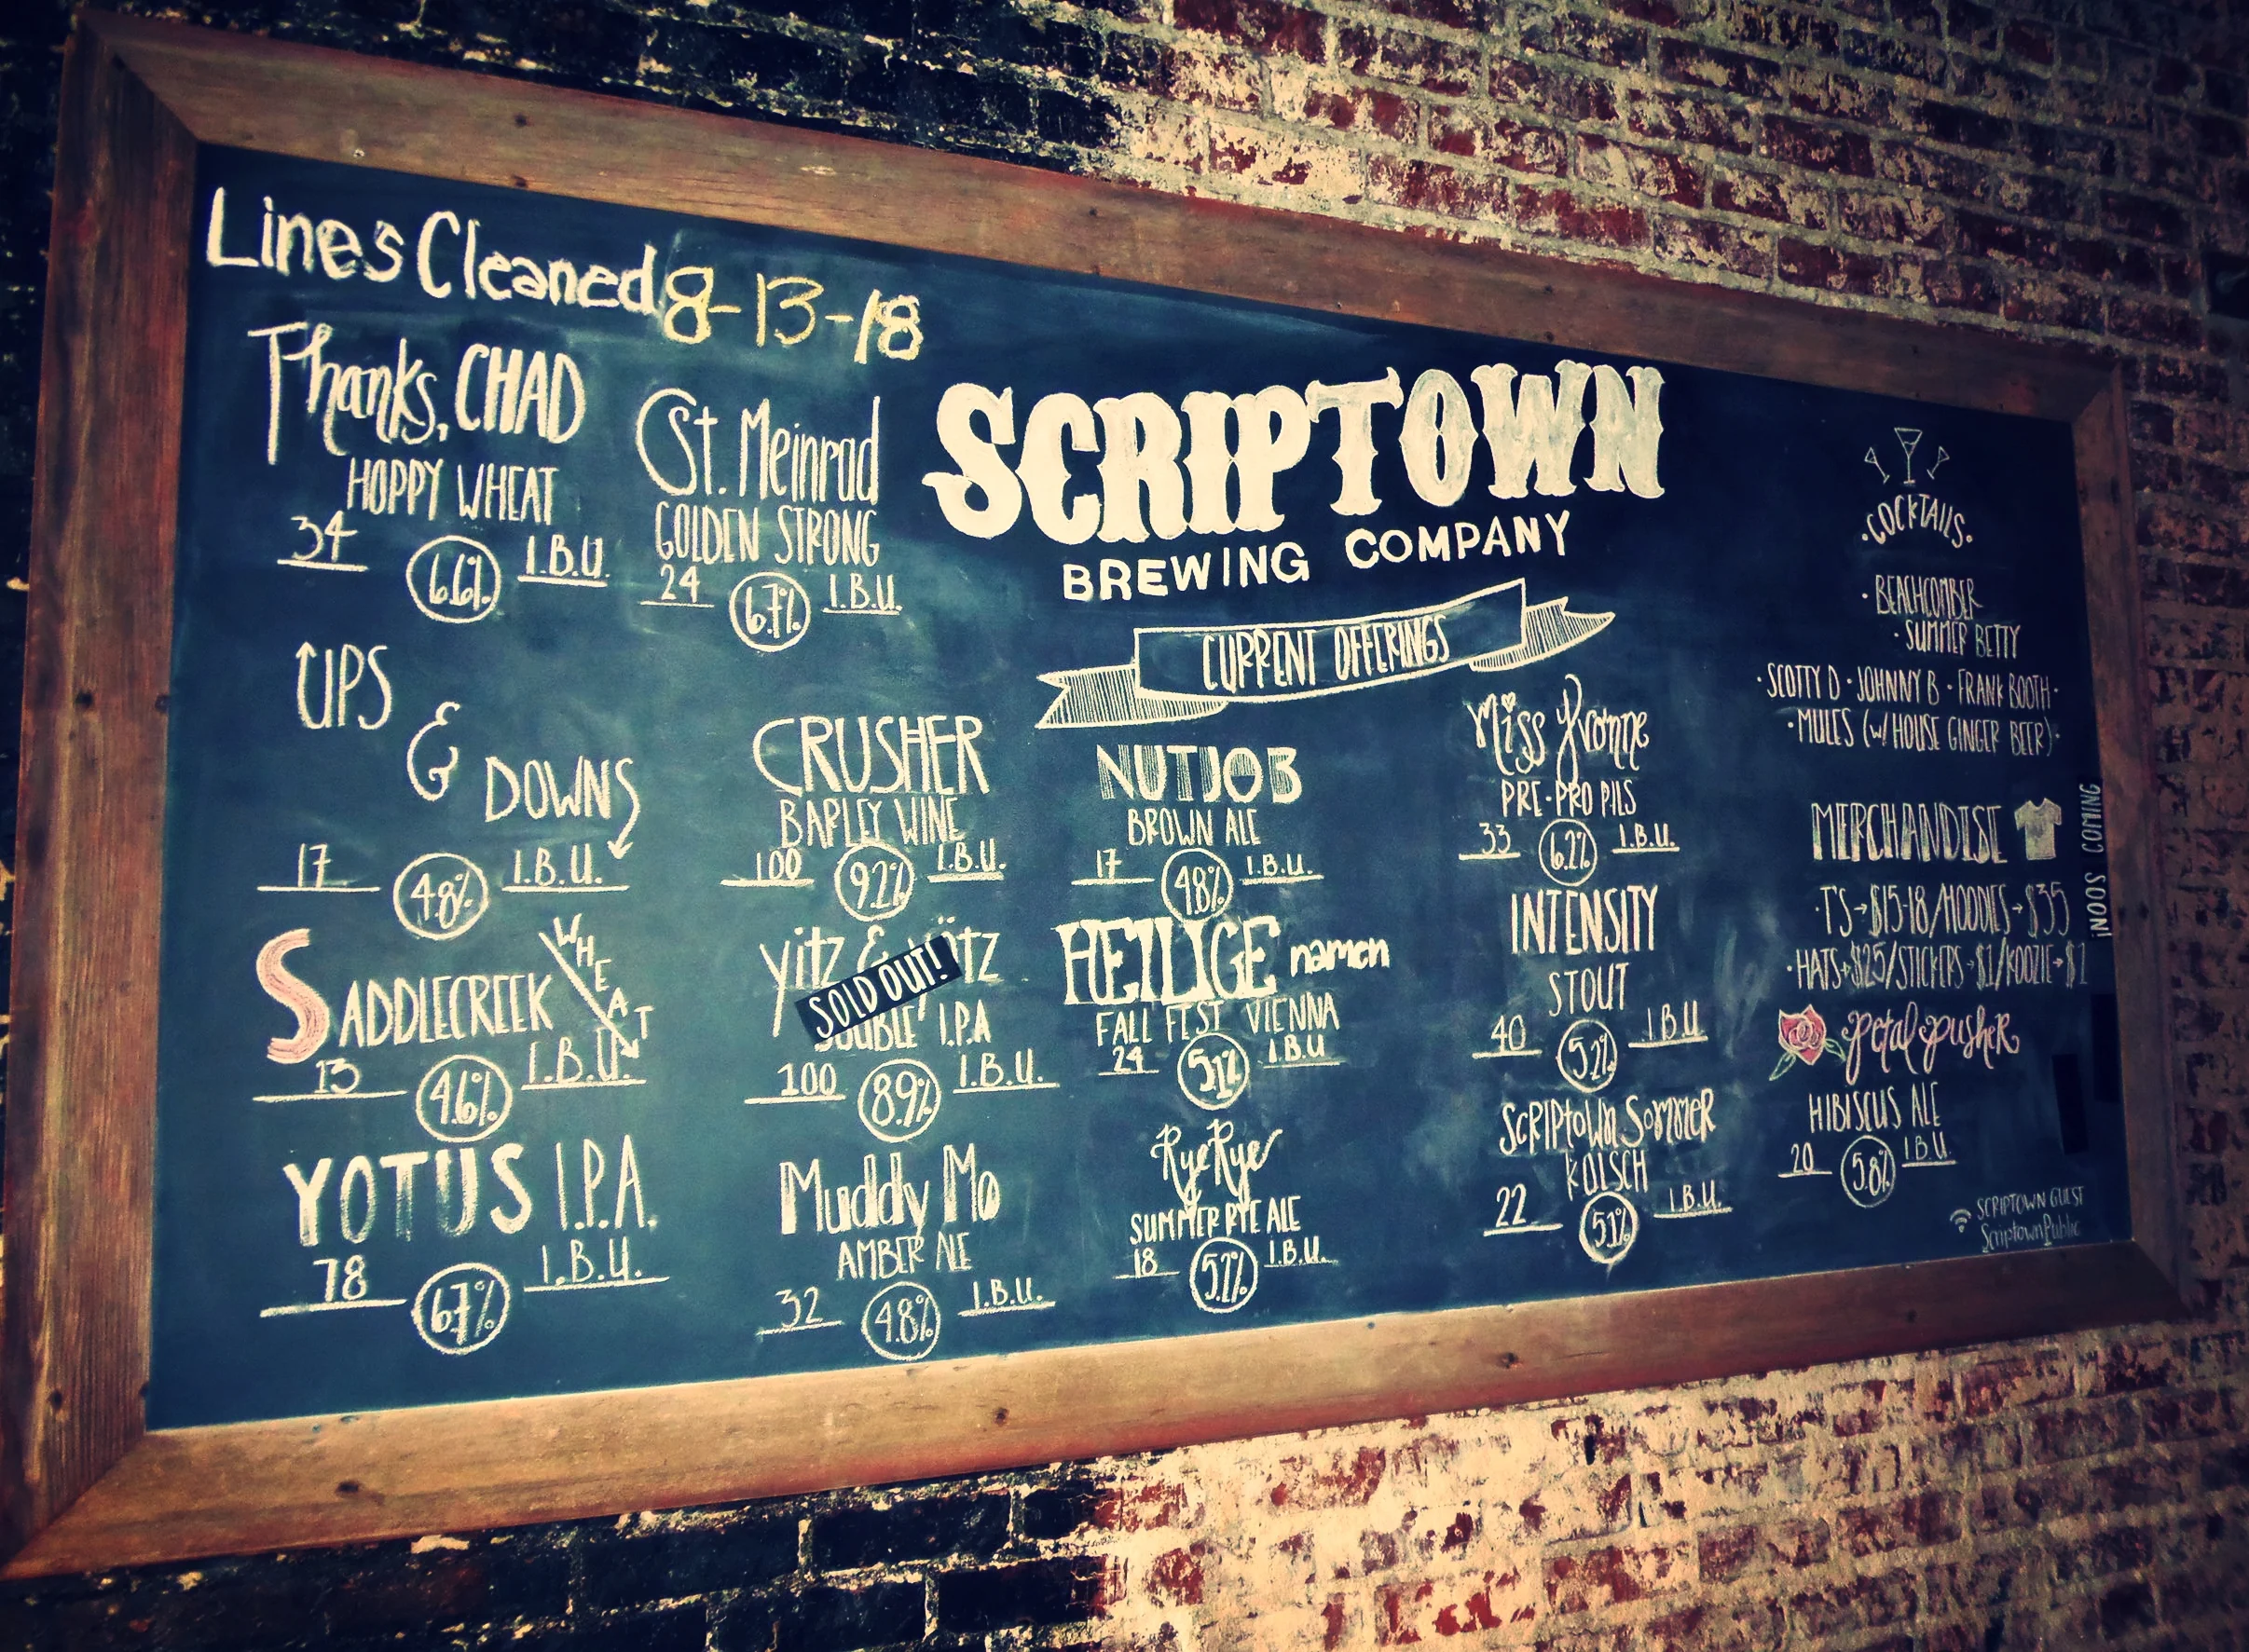 Lines Cleaned 8-13-18
Thanks, CHAD
HOPPY WHEAT
34 6.6% I.B.U.
St. Meinrad
GOLDEN STRONG
24 6.7% I.B.U.
SCRIPTOWN
BREWING COMPANY
CURRENT OFFERINGS
UPS
&
DOWNS
17 4.8% I.B.U.
SADDLECREEK WHEAT
13 4.6% I.B.U.
YOTUS I.P.A.
78 6.7% I.B.U.
CRUSHER
BARLEY WINE
100 9.2% I.B.U.
yitz &
SOLD OUT!
I.P.A
100 8.9% I.B.U.
Muddy Mo
AMBER ALE
32 4.8% I.B.U.
NUTJOB
BROWN ALE
17 4.8% I.B.U.
HEILIGE namen
FALL FEST VIENNA
24 5.1% I.B.U
RyeRye
SUMMER RYE ALE
18 5.2% I.B.U.
Miss Yvonne
PRE-PRO PILS
33 6.2% I.B.U.
INTENSITY
STOUT
40 5.2% I.B.U
SCRIPtown Sommer
KOLSCH
22 5.1% I.B.U.
·COCKTAILS.
· BEACHCOMBER
· SUMMER BETTY
· SCOTTY D · JOHNNY B · FRANK BOOTH ·
· MULES (w/ HOUSE GINGER BEER) ·
MERCHANDISE
COMING SOON!
· T'S → $15-18/HOODIES → $35
· HATS → $25/STICKERS → $1/KOOZIE → $1
Petal Pusher
HIBISCUS ALE
20 5.8% I.B.U
SCRIPTOWN GUEST
ScriptownPublic